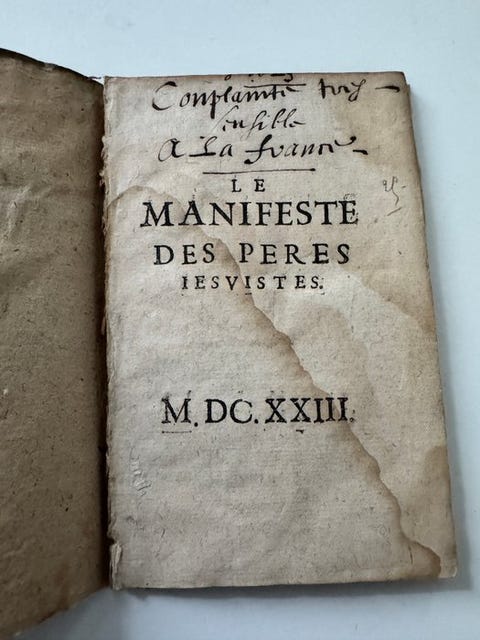 Complainte tres
sensible
A La france
LE
MANIFESTE
DES PERES
IESVISTES.
M. DC. XXIII.